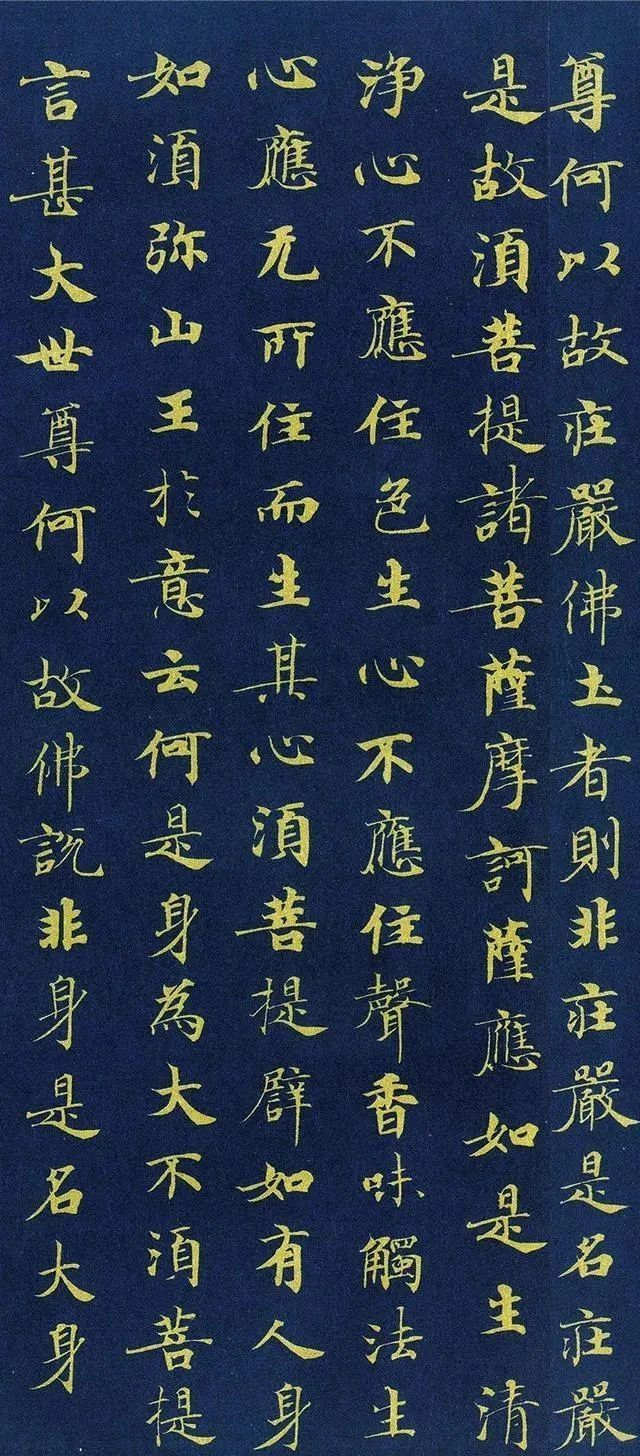 尊何以故莊嚴佛土者則非莊嚴是名莊嚴
是故須菩提諸菩薩摩訶薩應如是生清
淨心不應住色生心不應住聲香味觸法生
心應无所住而生其心須菩提辟如有人身
如須弥山王於意云何是身為大不須菩提
言甚大世尊何以故佛說非身是名大身